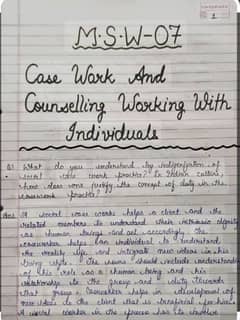 1
M.S.W-07
Case Work And
Counselling Working With
Individuals
Q1 What do you understand by indigenization of
social case work practice? In Indian culture,
how does one justify the concept of duty in the
casework practice?
Ans A social case work helps a client and the
related members to understand their intrinsic dignity
as human beings and act accordingly. The
caseworker helps an individual to understand
the reality of life and integrate such values in his
living style. The values should include understanding
of his role as a human being and his
relationship to the group and duty towards
that group. Caseworker helps in development of
new ideas in the client that is beneficial for him.
A social worker in the process has to involve